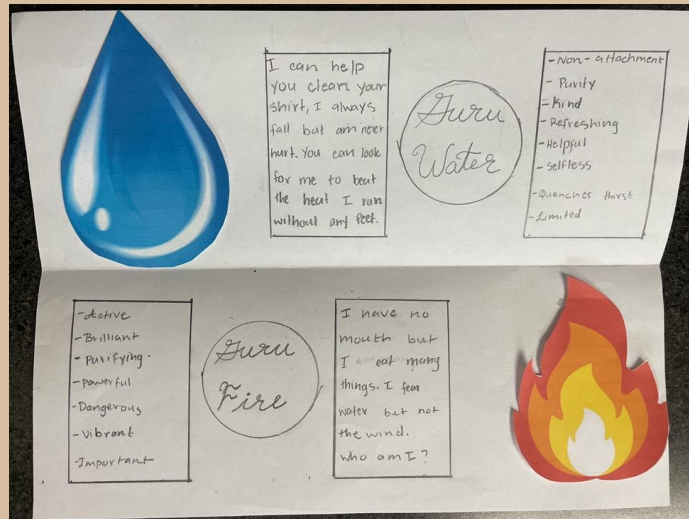 I can help
you clean your
shirt, I always
fall but am never
hurt. You can look
for me to beat
the heat I run
without any feet.
Guru
Water
- Non-attachment
- Purity
- Kind
- Refreshing
- Helpful
- Selfless
- Quenches thirst
- Limited
- Active
- Brilliant
- Purifying.
- Powerful
- Dangerous
- Vibrant
- Important
Guru
Fire
I have no
mouth but
I eat many
things. I fear
water but not
the wind.
who am I?